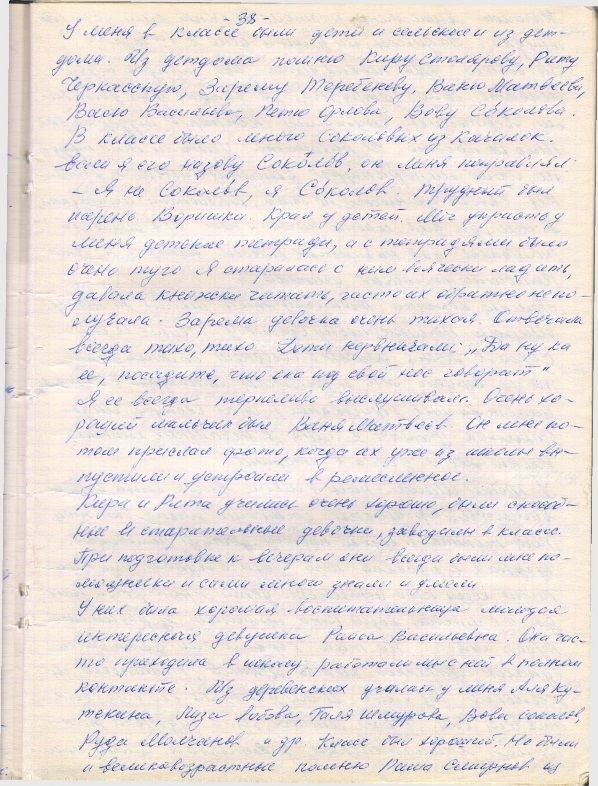 - 38 -
У меня в классе были дети и сельские и из дет-
дома. Из детдома помню Киру Столярову, Риту
Черкасскую, Зарему Теребекову, Ваню Матвеева,
Васю Васильева, Петю Орлова, Вову Соколова.
В классе было много Соколовых из Качалок.
если я его назову Соколов, он меня поправлял:
- Я не Соколов, я Соколов. Трудный был
парень Воришка. Крал у детей. Мог украсть у
меня детские тетради, а с тетрадями было
очень туго Я старалась с ним всячески ладить,
давала книжки читать, часто их обратно не по-
лучала. Зарема девочка очень тихая. Отвечала
всегда тихо, тихо Дети нервничали: „Да ну ка
ее, посадите, что она под свой нос говорит"
Я ее всегда терпеливо выслушивала. Очень хо-
роший мальчик был Ваня Матвеев. Он мне по-
том прислал фото, когда их уже из школы вы-
пустили и устроили в ремесленное.
Кира и Рита учились очень хорошо, были способ-
ные и старательные девочки, заводилы в классе.
При подготовке к вечерам они всегда были мне по-
мощники и сами много знали и умели.
У них была хорошая воспитательница молодая
интересная девушка Раиса Васильевна. Она час-
то приходила в школу, работали мы с ней в полном
контакте. Из деревенских училась у меня Аля Ку-
текина, Лиза Лобова, Галя Шмурова, Вова Соколов,
Руда Молчанов и др. Класс был хороший. Но были
и великовозрастные помню Раша Смирнов из